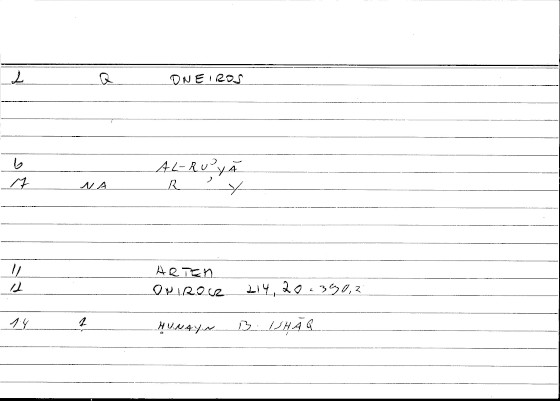 1 Q ONEIROS
6 AL-RUʾYĀ
17 NA R ʾ Y
11 ARTEM
12 ONIROCR 214,20 - 390,2
14 1 ḤUNAYN B. ISḤĀQ